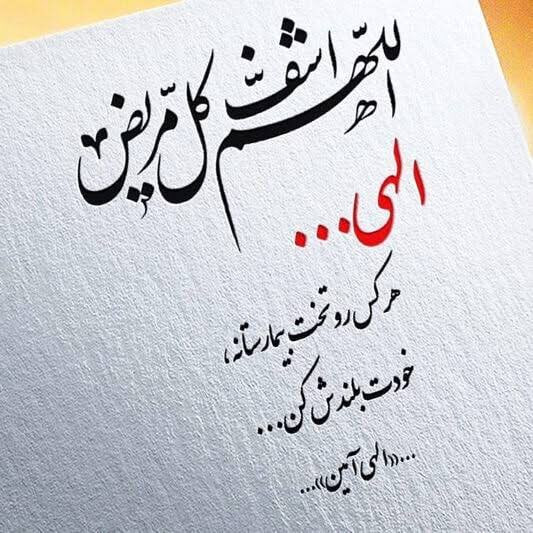 اللّهم اشف كل مريض
الهی...
هر کس رو تخت بیمارستانه،
خودت بلندش کن...
...«الهی آمین»...